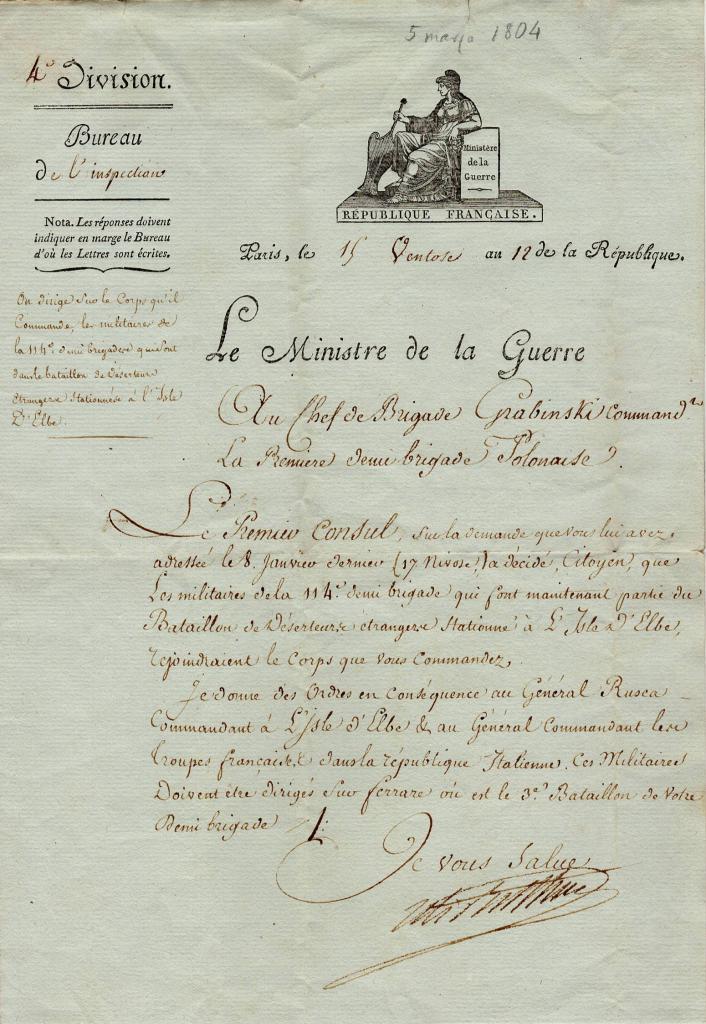 5 marca 1804
4e Division.
Bureau
De l'inspection
Nota. Les réponses doivent
indiquer en marge le Bureau
d'où les Lettres sont écrites.
Ministère
de la
Guerre
RÉPUBLIQUE FRANÇAISE.
Paris, le 15 Ventose an 12 de la République.
On dirige Sur le Corps qu'il
Commande, les militaires de
la 114e demi brigade qui font
dans le bataillon de Déserteurs
étrangers Stationnés à l'Isle
D'Elbe.
Le Ministre de la Guerre
Au Chef de Brigade Grabinski Commandt
La Premiere demi brigade Polonaise.
Le Premier Consul, Sur la demande que vous lui avez
adressée le 8. Janvier dernier (17 Nivose) a décidé, Citoyen, que
Les militaires de la 114e demi brigade qui font maintenant partie du
Bataillon de Déserteurs étrangers Stationné à L'Isle D'Elbe,
rejoindraient le Corps que vous Commandez.
Je donne des Ordres en conséquence au Général Rusca
Commandant à L'Isle d'Elbe & au Général Commandant les
troupes françaises dans la république Italienne. Ces Militaires
Doivent être dirigés Sur ferrare où est le 3e Bataillon de Votre
Demi brigade ./.
Je vous Salue